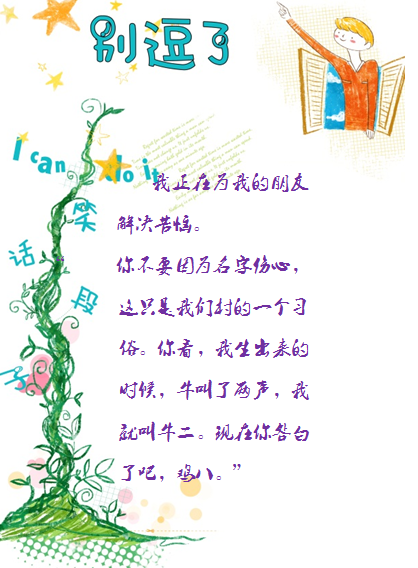 别逗了
I can do it
笑
话
段
子
我正在为我的朋友
解决苦恼。
你不要因为名字伤心，
这只是我们村的一个习
俗。你看，我生出来的
时候，牛叫了两声，我
就叫牛二。现在你答白
了吧，鸡八。”